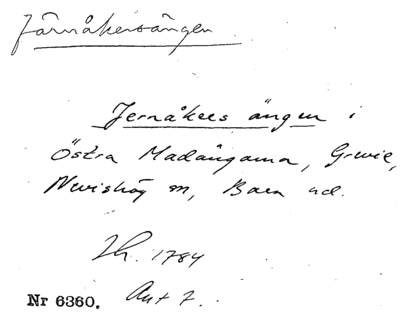 Järnåkersängen
Jernåkers ängen i
Östra Madängarna, Grevie,
Nevishög m, Bara hd.
Lh. 1784
Nr 6360. Akt 7.